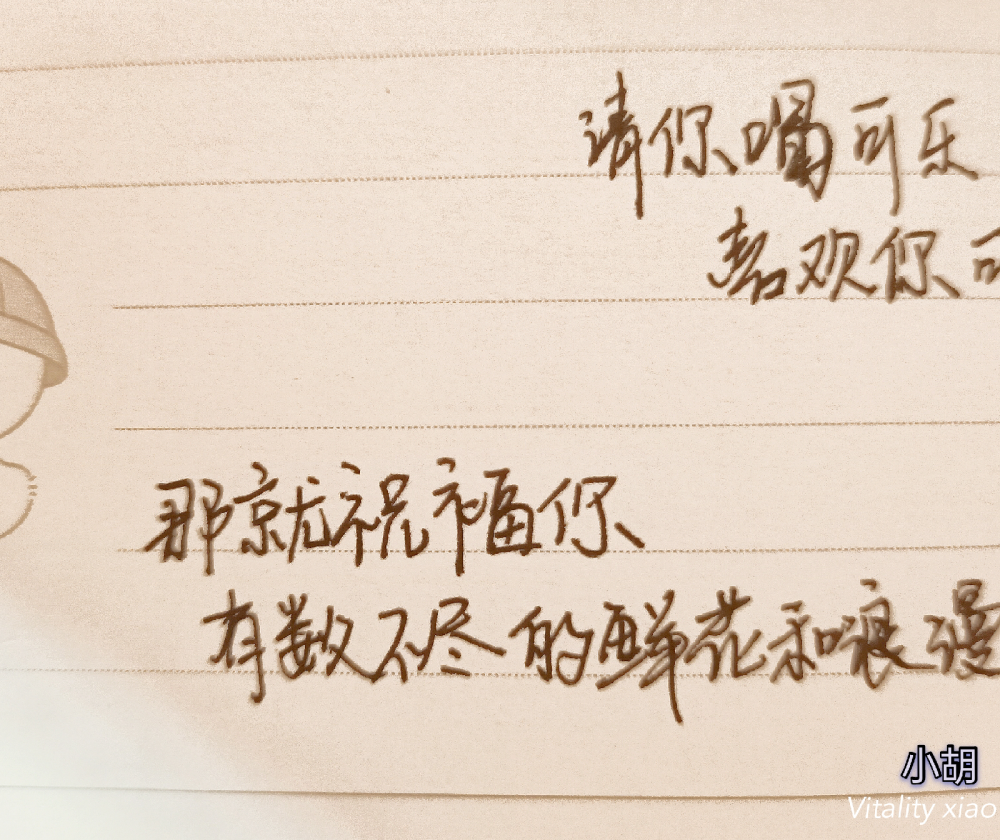 请你喝可乐
喜欢你可
那就祝福你
有数不尽的鲜花和浪漫
小胡
Vitality xiao